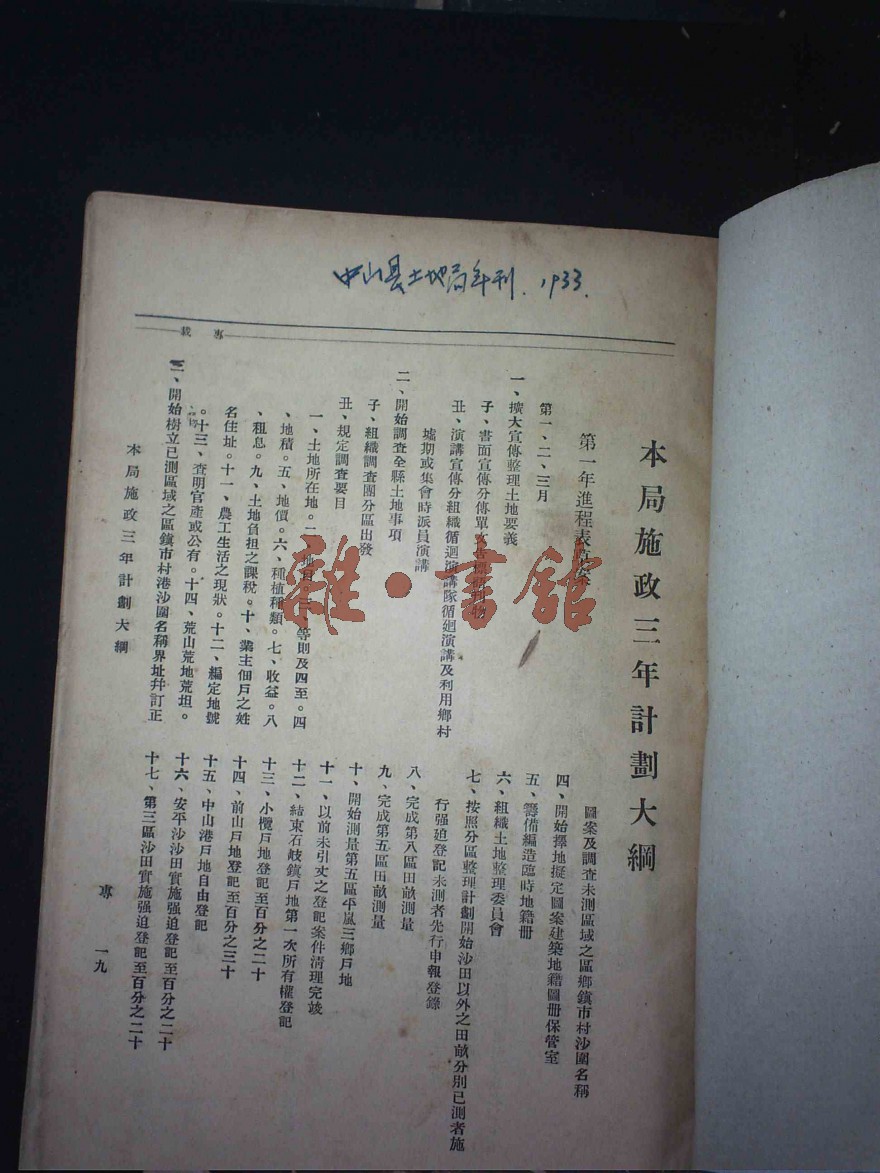 中山县土地局年刊. 1933.
專載
本局施政三年計劃大綱
第一年進程表草案
第一、二、三月
一、擴大宣傳整理土地要義
子、書面宣傳分傳單文告標語刊物
丑、演講宣傳分組織循迴演講隊循迴演講及利用鄉村
墟期或集會時派員演講
二、開始調查全縣土地事項
子、組織調查團分區出發
丑、規定調查要目
一、土地所在地。二、地目。三、等則及四至。四
、地積。五、地價。六、種植種類。七、收益。八
、租息。九、土地負担之課稅。十、業主佃戶之姓
名住址。十一、農工生活之現狀。十二、編定地號
。十三、查明官產或公有。十四、荒山荒地荒坦。
三、開始樹立已測區域之區鎮市村港沙圍名稱界址幷訂正
圖案及調查未測區域之區鄉鎮市村沙圍名稱
四、開始擇地擬定圖案建築地籍圖冊保管室
五、籌備編造臨時地籍冊
六、組織土地整理委員會
七、按照分區整理計劃開始沙田以外之田畝分別已測者施
行强迫登記未測者先行申報登錄
八、完成第八區田畝測量
九、完成第五區田畝測量
十、開始測量第五區平嵐三鄉戶地
十一、以前未引丈之登記案件清理完竣
十二、結束石岐鎮戶地第一次所有權登記
十三、小欖戶地登記至百分之二十
十四、前山戶地登記至百分之三十
十五、中山港戶地自由登記
十六、安平沙沙田實施强迫登記至百分之二十
十七、第三區沙田實施强迫登記至百分之二十
本局施政三年計劃大綱
專 一九
雜·書館